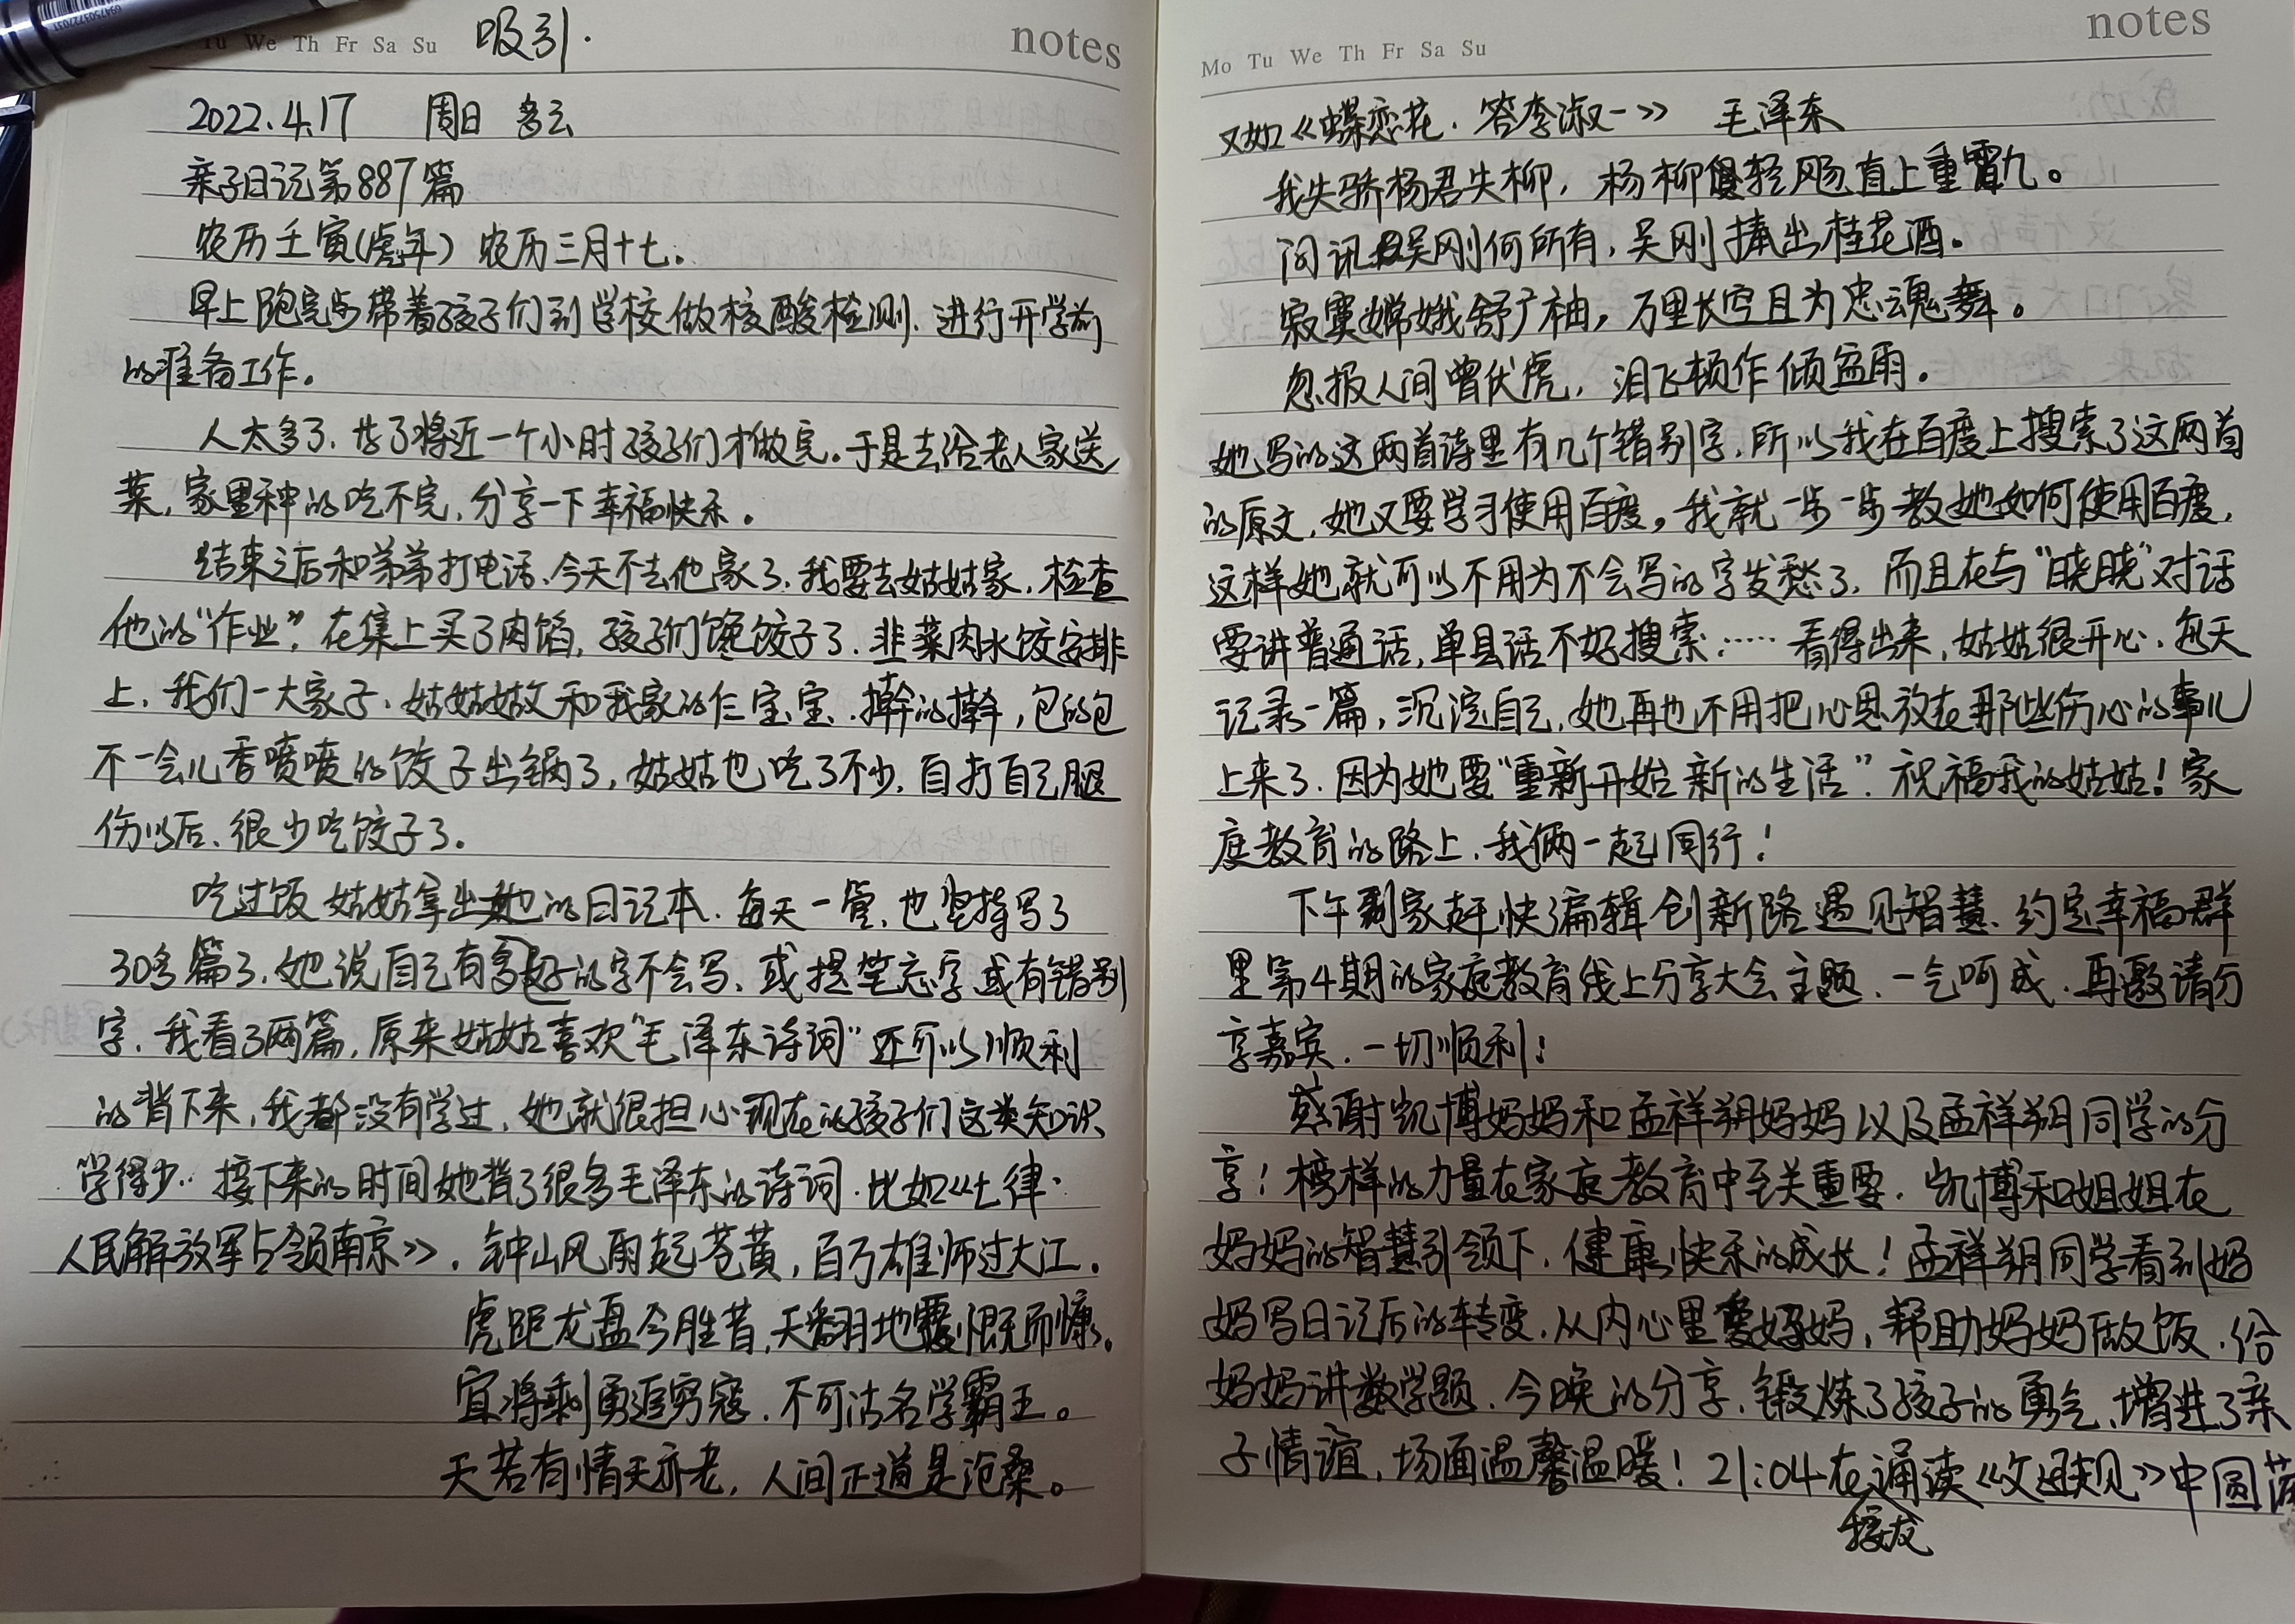 Tu We Th Fr Sa Su 吸引. notes
2022.4.17 周日 多云
亲子日记第887篇
农历壬寅(虎年) 农历三月十七.
早上跑完步带着孩子们到学校做核酸检测.进行开学前
的准备工作.
人太多了.花了将近一个小时孩子们才做完.于是去给老人家送
菜,家里种的吃不完,分享一下幸福快乐.
结束之后和弟弟打电话.今天不去他家了.我要去姑姑家,检查
他的“作业”.在集上买了肉馅,孩子们馋饺子了.韭菜肉水饺安排
上.我们一大家子.姑姑姑父和我家的仨宝宝.擀的擀,包的包
不一会儿香喷喷的饺子出锅了,姑姑也吃了不少.自打自己腿
伤以后.很少吃饺子了.
吃过饭姑姑拿出她的日记本.每天一篇.也坚持写了
30多篇了.她说自己有好多的字不会写.或提笔忘字或有错别
字.我看了两篇,原来姑姑喜欢“毛泽东诗词”还可以顺利
的背下来,我都没有学过.她就很担心现在的孩子们这类知识
学得少.接下来的时间她背了很多毛泽东的诗词.比如《七律·
人民解放军占领南京》.钟山风雨起苍黄,百万雄师过大江.
虎距龙盘今胜昔,天翻地覆慨而慷.
宜将剩勇追穷寇.不可沽名学霸王。
天若有情天亦老,人间正道是沧桑。
Mo Tu We Th Fr Sa Su notes
又如《蝶恋花.答李淑一》 毛泽东
我失骄杨君失柳,杨柳轻飏直上重霄九。
问讯吴刚何所有,吴刚捧出桂花酒.
寂寞嫦娥舒广袖,万里长空且为忠魂舞。
忽报人间曾伏虎,泪飞顿作倾盆雨.
她写的这两首诗里有几个错别字.所以我在百度上搜索了这两首
的原文.她又要学习使用百度,我就一步一步教她如何使用百度,
这样她就可以不用为不会写的字发愁了.而且在与“晓晓”对话
要讲普通话,单县话不好搜索……看得出来,姑姑很开心.每天
记录一篇,沉淀自己,她再也不用把心思放在那些伤心的事儿
上来了.因为她要“重新开始新的生活”.祝福我的姑姑!家
庭教育的路上.我俩一起同行!
下午到家赶快编辑创新路遇见智慧.约定幸福群
里第4期的家庭教育线上分享大会主题.一气呵成.再邀请分
享嘉宾.一切顺利!
感谢凯博妈妈和孟祥朔妈妈以及孟祥朔同学的分
享!榜样的力量在家庭教育中至关重要.凯博和姐姐在
妈妈的智慧引领下,健康快乐的成长!孟祥朔同学看到妈
妈写日记后的转变.从内心里爱妈妈,帮助妈妈做饭.给
妈妈讲数学题.今晚的分享.锻炼了孩子的勇气,增进了亲
子情谊,场面温馨温暖!21:04在诵读《父母规》中圆满
接龙